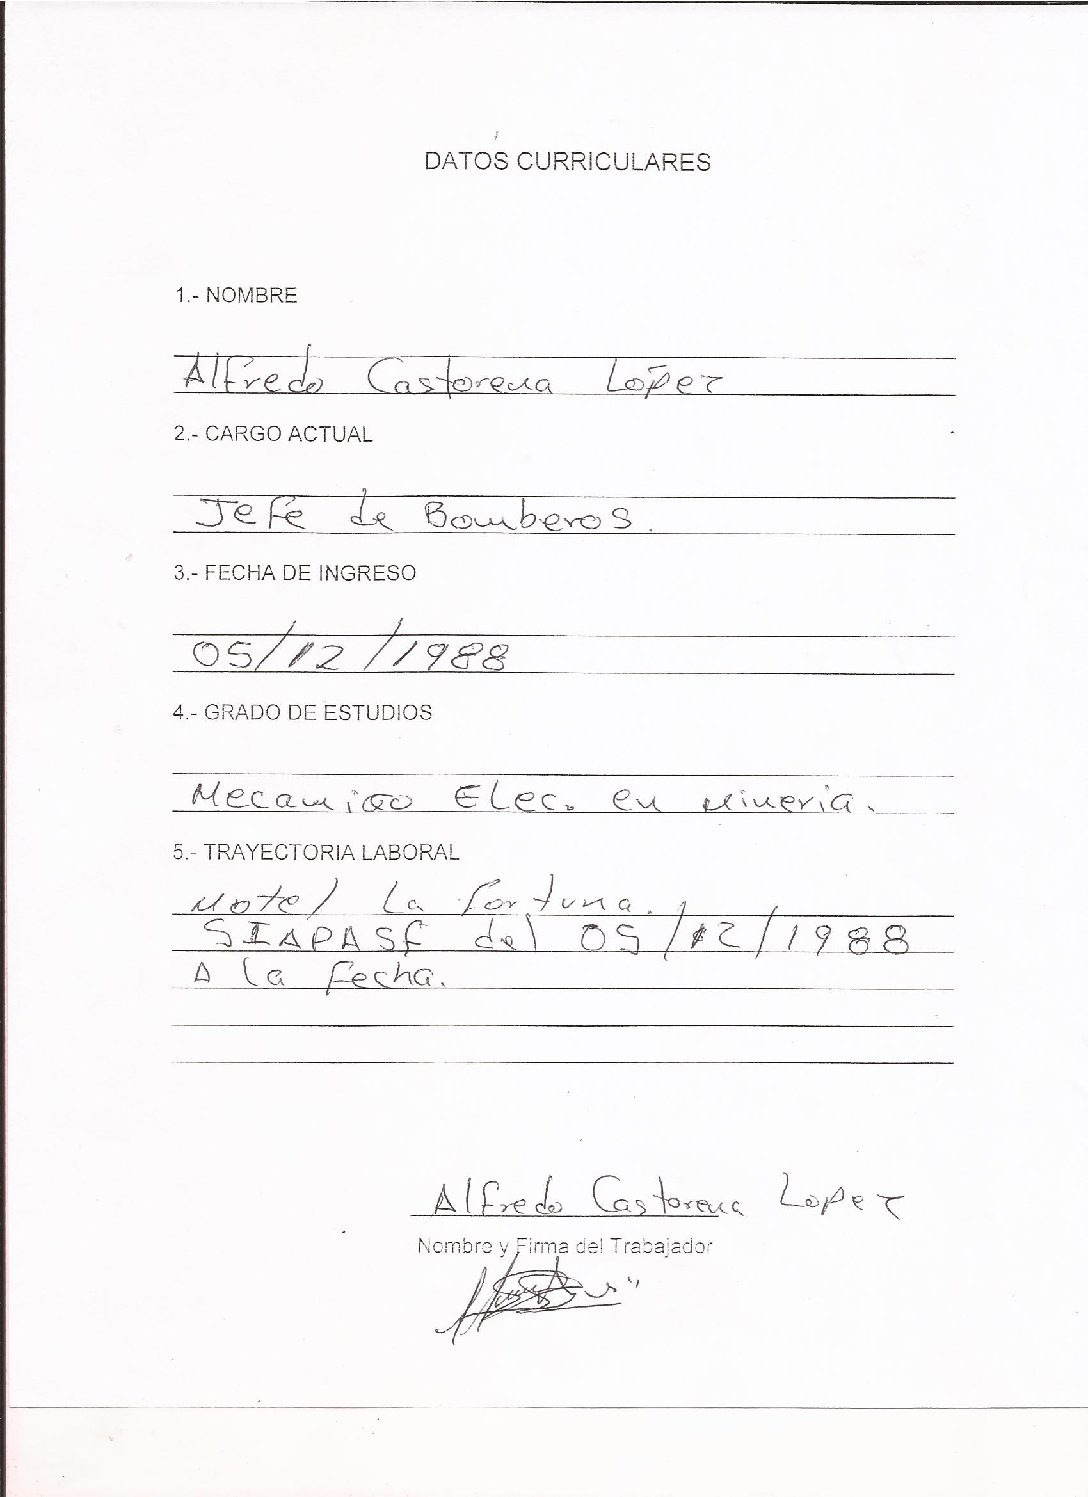 DATOS CURRICULARES
1.- NOMBRE
Alfredo Castorena López
2.- CARGO ACTUAL
Jefe de Bomberos.
3.- FECHA DE INGRESO
05/12/1988
4.- GRADO DE ESTUDIOS
Mecanico Elec. en Mineria.
5.- TRAYECTORIA LABORAL
Motel La Fortuna.
SIAPASF del 05/12/1988
A la Fecha.
Alfredo Castorena Lopez
Nombre y Firma del Trabajador